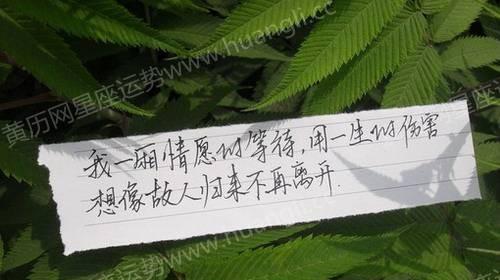 黄历网星座运势www.huangli.cc
黄历网星座运势www.huangli.cc
我一厢情愿的等待，用一生的伤害
想像故人归来不再离开.